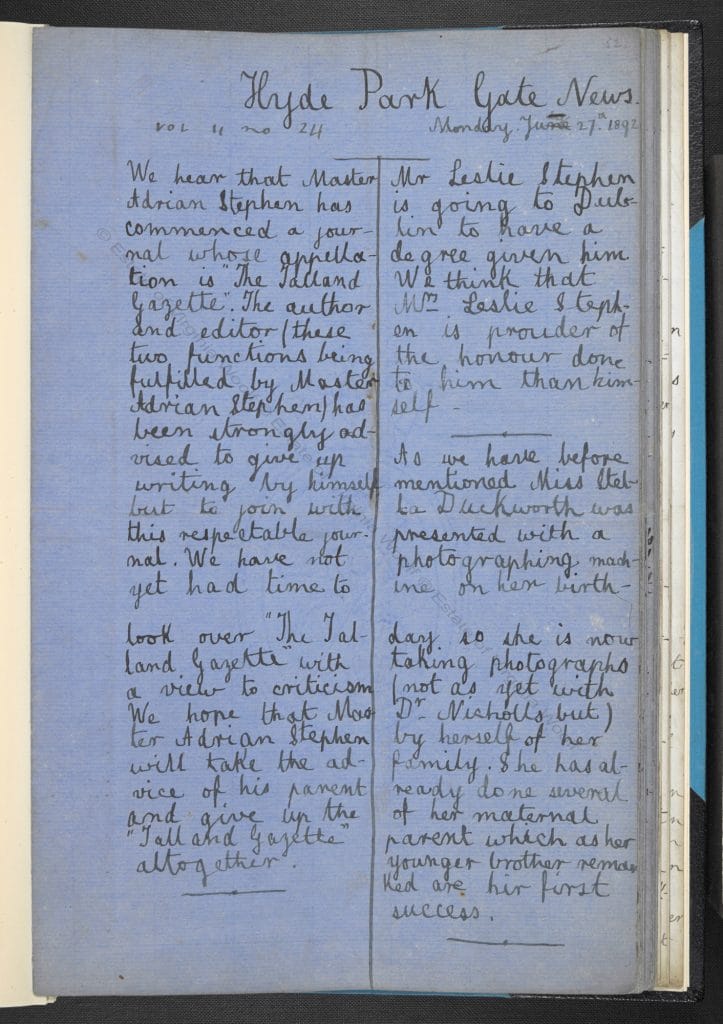 52
Hyde Park Gate News.
vol 11 no 24
Monday. June 27th 1892
We hear that Master
Adrian Stephen has
commenced a jour-
nal whose appella-
tion is "The Talland
Gazette". The author
and editor (these
two functions being
fulfilled by Master
Adrian Stephen) has
been strongly ad-
vised to give up
writing by himself
but to join with
this respectable jour-
nal. We have not
yet had time to
look over "The Tal-
land Gazette" with
a view to criticism
We hope that Mas
ter Adrian Stephen
will take the ad-
vice of his parent
and give up the
"Talland Gazette"
altogether.
Mr Leslie Stephen
is going to Dub-
lin to have a
degree given him
We think that
Mrs Leslie Steph-
en is prouder of
the honour done
to him than him-
self -
As we have before
mentioned Miss Stel-
la Duckworth was
presented with a
photographing mach-
ine on her birth-
day so she is now
taking photographs
(not as yet with
Dr. Nicholls but)
by herself of her
family. She has al-
ready done several
of her maternal
parent which as her
younger brother remar
ked are hir first
success.